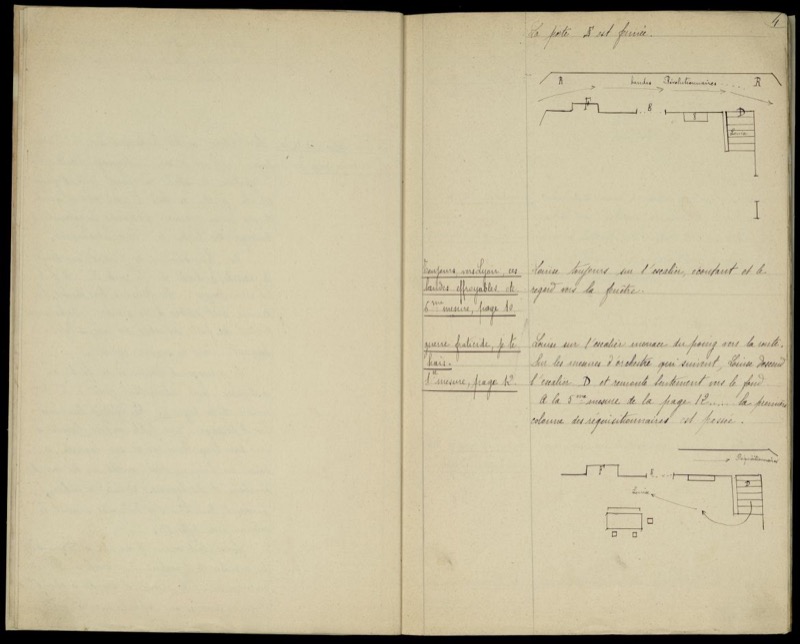 4
La porte E est fermée.
R bandes Révolutionnaires .... R
F E D
Louise
Toujours, vers Lyon, ces
bandes effroyables de
6me mesure, page 10.
Louise toujours sur l'escalier, écoutant et le
regard vers la fenêtre.
guerre fraticide, je te
hais.
1re mesure, page 12.
Louise sur l'escalier menace du poing vers la
Sur les mesures d'orchestre qui suivent, Louise descend
l'escalier D et remonte lentement vers le fond
A la 5me mesure de la page 12.... la première
colonne des réquisitionnaires est passée.
Réquisitionnaires
F E D
Louise